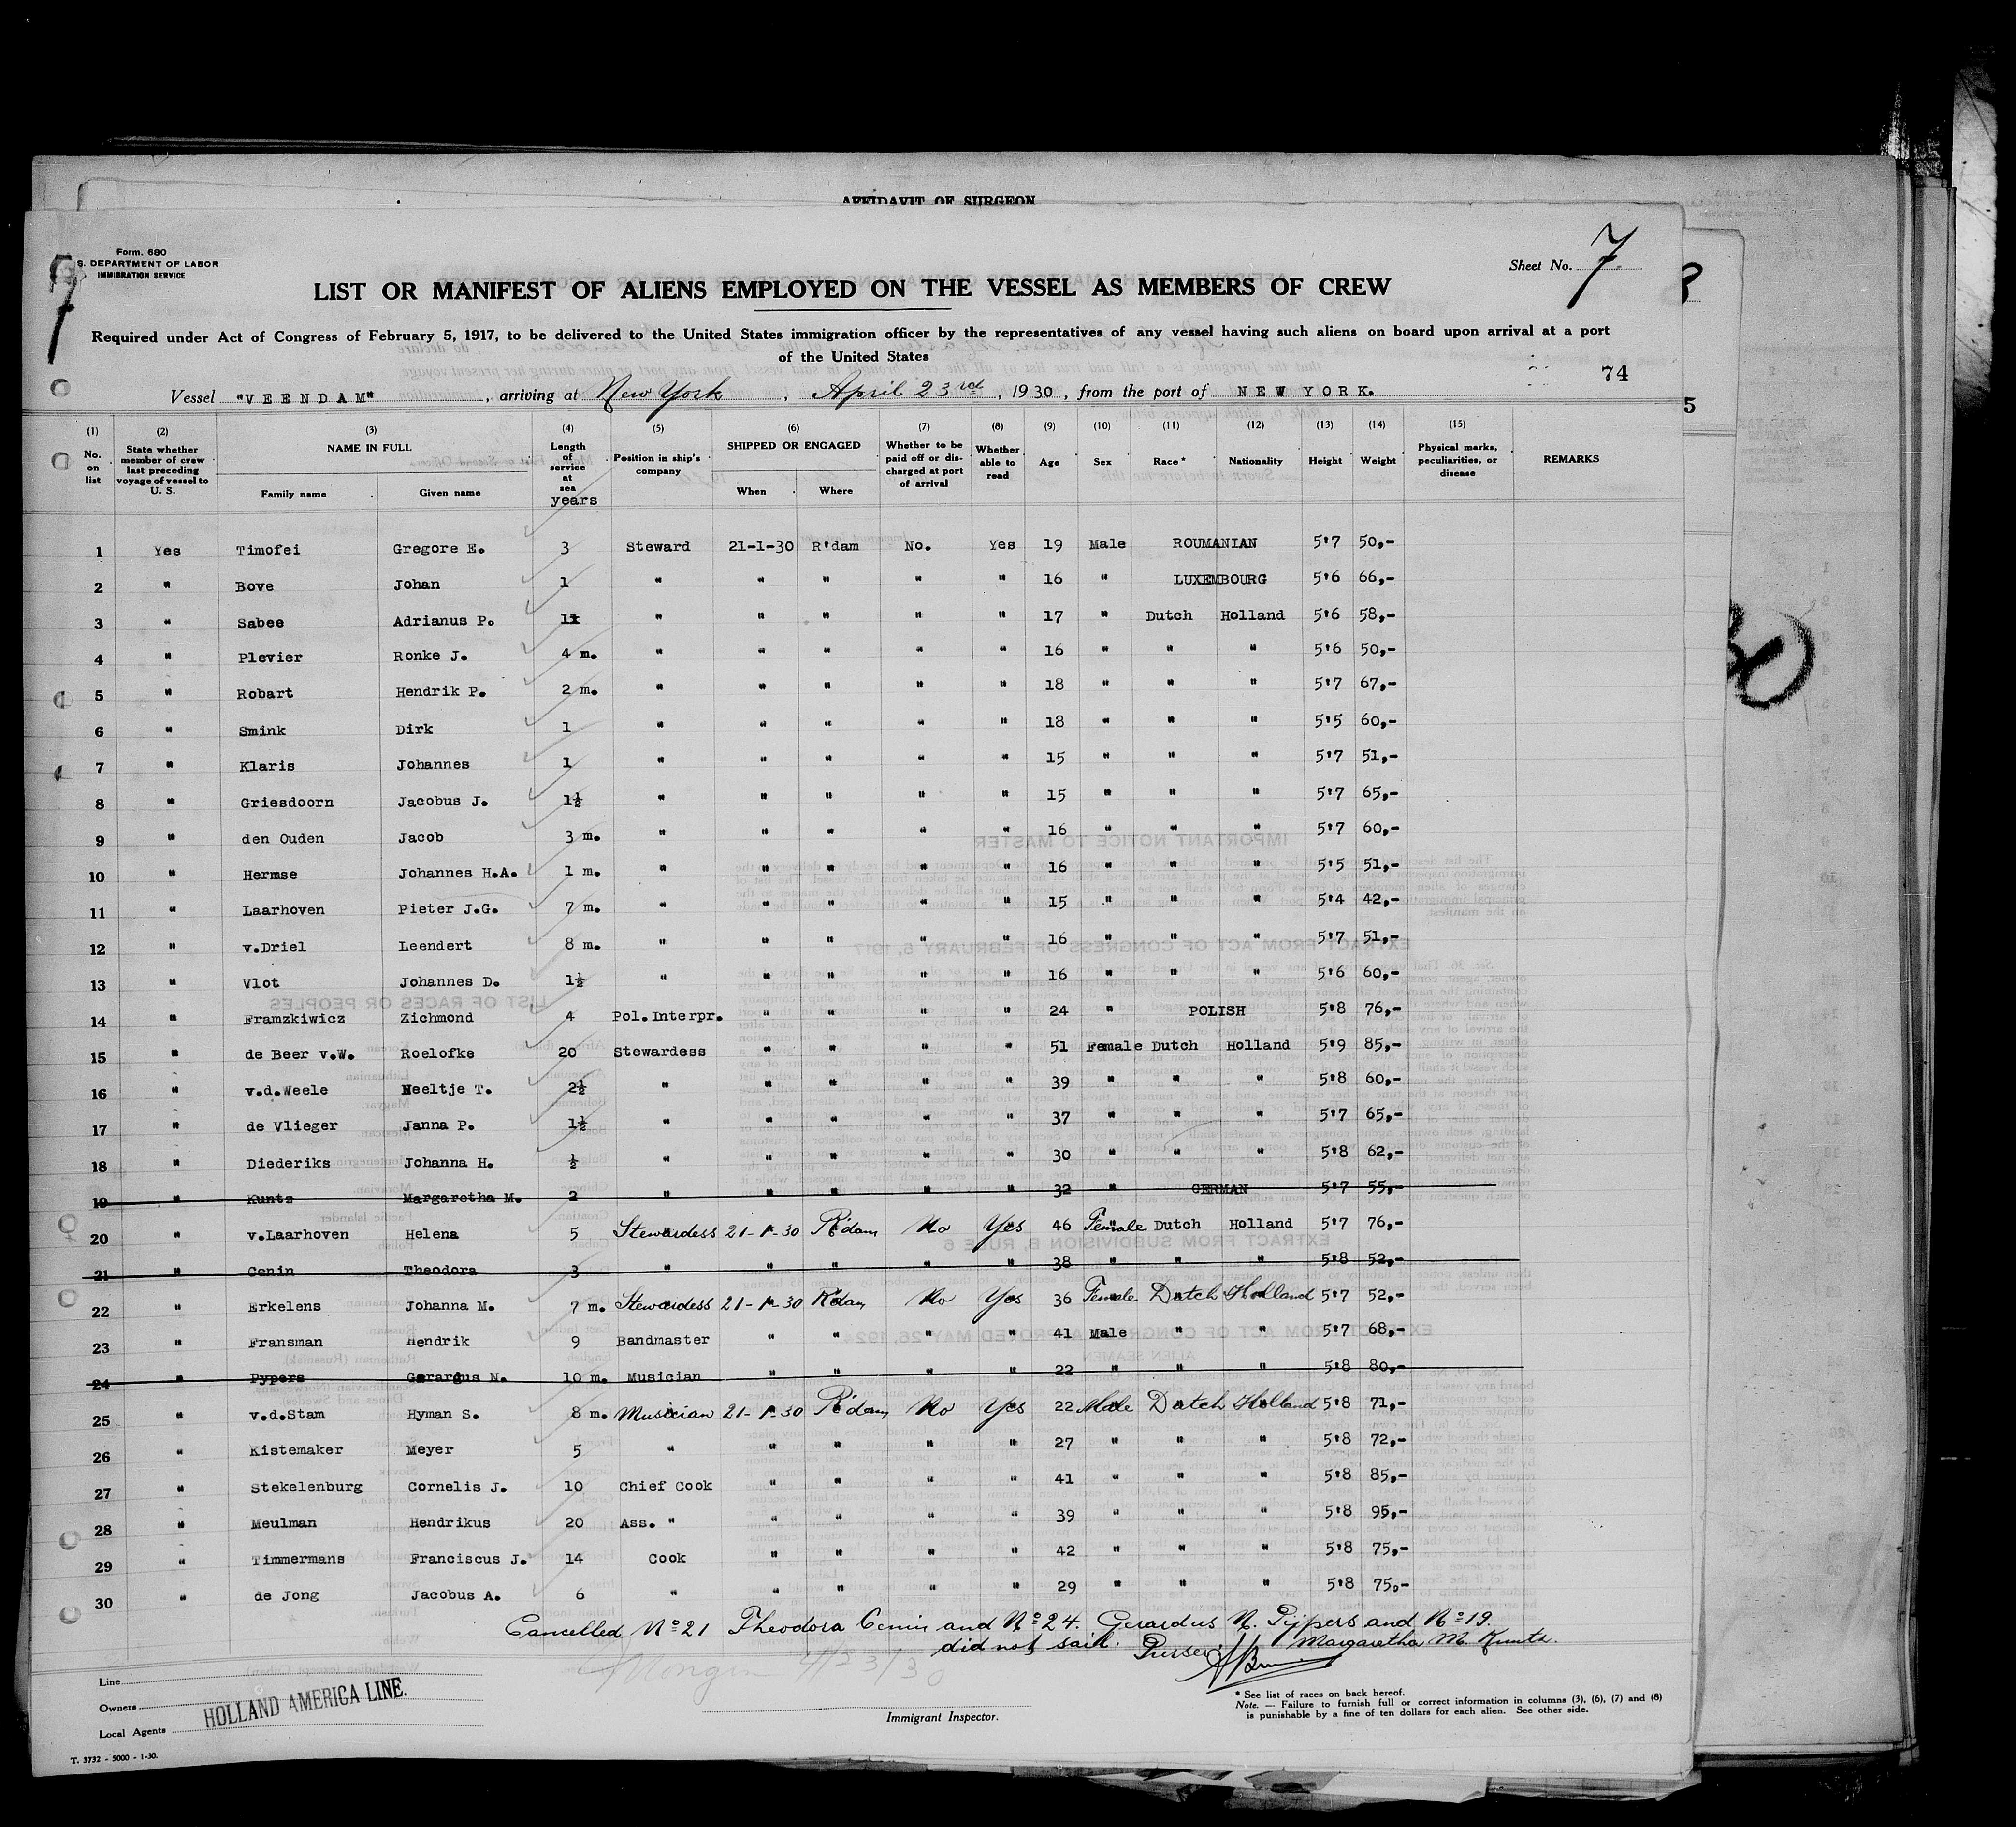 AFFIDAVIT OF SURGEON
Form. 680
S. DEPARTMENT OF LABOR
IMMIGRATION SERVICE
Sheet No. 7
7
LIST OR MANIFEST OF ALIENS EMPLOYED ON THE VESSEL AS MEMBERS OF CREW
Required under Act of Congress of February 5, 1917, to be delivered to the United States immigration officer by the representatives of any vessel having such aliens on board upon arrival at a port
of the United States
74
Vessel "VEENDAM", arriving at New York, April 23rd, 1930, from the port of NEW YORK.
5
(1) (2) (3) (4) (5) (6) (7) (8) (9) (10) (11) (12) (13) (14) (15)
No. on list | State whether member of crew last preceding voyage of vessel to U. S. | NAME IN FULL Family name Given name | Length of service at sea years | Position in ship's company | SHIPPED OR ENGAGED When Where | Whether to be paid off or discharged at port of arrival | Whether able to read | Age | Sex | Race* | Nationality | Height | Weight | Physical marks, peculiarities, or disease | REMARKS
1 Yes Timofei Gregore E. 3 Steward 21-1-30 R'dam No. Yes 19 Male ROUMANIAN 5'7 50,-
2 " Bove Johan 1 " " " " " 16 " LUXEMBOURG 5'6 66,-
3 " Sabee Adrianus P. " " " " " 17 " Dutch Holland 5'6 58,-
4 " Plevier Ronke J. 4 m. " " " " " 16 " " " 5'6 50,-
5 " Robart Hendrik P. 2 m. " " " " " 18 " " " 5'7 67,-
6 " Smink Dirk 1 " " " " " 18 " " " 5'5 60,-
7 " Klaris Johannes 1 " " " " " 15 " " " 5'7 51,-
8 " Griesdoorn Jacobus J. 1½ " " " " " 15 " " " 5'7 65,-
9 " den Ouden Jacob 3 m. " " " " " 16 " " " 5'7 60,-
10 " Hermse Johannes H.A. 1 m. " " " " " 16 " " " 5'5 51,-
11 " Laarhoven Pieter J.G. 7 m. " " " " " 15 " " " 5'4 42,-
12 " v.Driel Leendert 8 m. " " " " " 16 " " " 5'7 51,-
13 " Vlot Johannes D. 1½ " " " " " 16 " " " 5'6 60,-
14 " Framzkiwicz Zichmond 4 Pol.Interpr. " " " " 24 " POLISH 5'8 76,-
15 " de Beer v.W. Roelofke 20 Stewardess " " " " 51 Female Dutch Holland 5'9 85,-
16 " v.d.Weele Neeltje T. 2½ " " " " " 39 " " " 5'8 60,-
17 " de Vlieger Janna P. 1½ " " " " " 37 " " " 5'7 65,-
18 " Diederiks Johanna H. ½ " " " " " 30 " " " 5'8 62,-
19 " Kuntz Margaretha M. 2 " " " " " 32 " GERMAN 5'7 55,-
20 " v.Laarhoven Helena 5 Stewardess 21-1-30 R'dam No Yes 46 Female Dutch Holland 5'7 76,-
21 " Cenin Theodora 3 " " " " " 38 " " " 5'8 52,-
22 " Erkelens Johanna M. 7 m. Stewardess 21-1-30 R'dam No Yes 36 Female Dutch Holland 5'7 52,-
23 " Fransman Hendrik 9 Bandmaster " " " " 41 Male " " 5'7 68,-
24 " Pypers Gerardus N. 10 m. Musician " " " " 22 " " " 5'8 80,-
25 " v.d.Stam Hyman S. 8 m. Musician 21-1-30 R'dam No Yes 22 Male Dutch Holland 5'8 71,-
26 " Kistemaker Meyer 5 " " " " " 27 " " " 5'8 72,-
27 " Stekelenburg Cornelis J. 10 Chief Cook " " " " 41 " " " 5'8 85,-
28 " Meulman Hendrikus 20 Ass. " " " " " 39 " " " 5'8 95,-
29 " Timmermans Franciscus J. 14 Cook " " " " 42 " " " 5'8 75,-
30 " de Jong Jacobus A. 6 " " " " " 29 " " " 5'8 75,-
Cancelled No 21 Theodora Cenin and No 24. Gerardus N. Pijpers and No 19.
did not sail. Purser Margaretha M. Kuntz.
4/23/30
Line
Owners
HOLLAND AMERICA LINE.
Local Agents
Immigrant Inspector.
* See list of races on back hereof.
Note. — Failure to furnish full or correct information in columns (3), (6), (7) and (8)
is punishable by a fine of ten dollars for each alien. See other side.
T. 3732 - 5000 - 1-30.